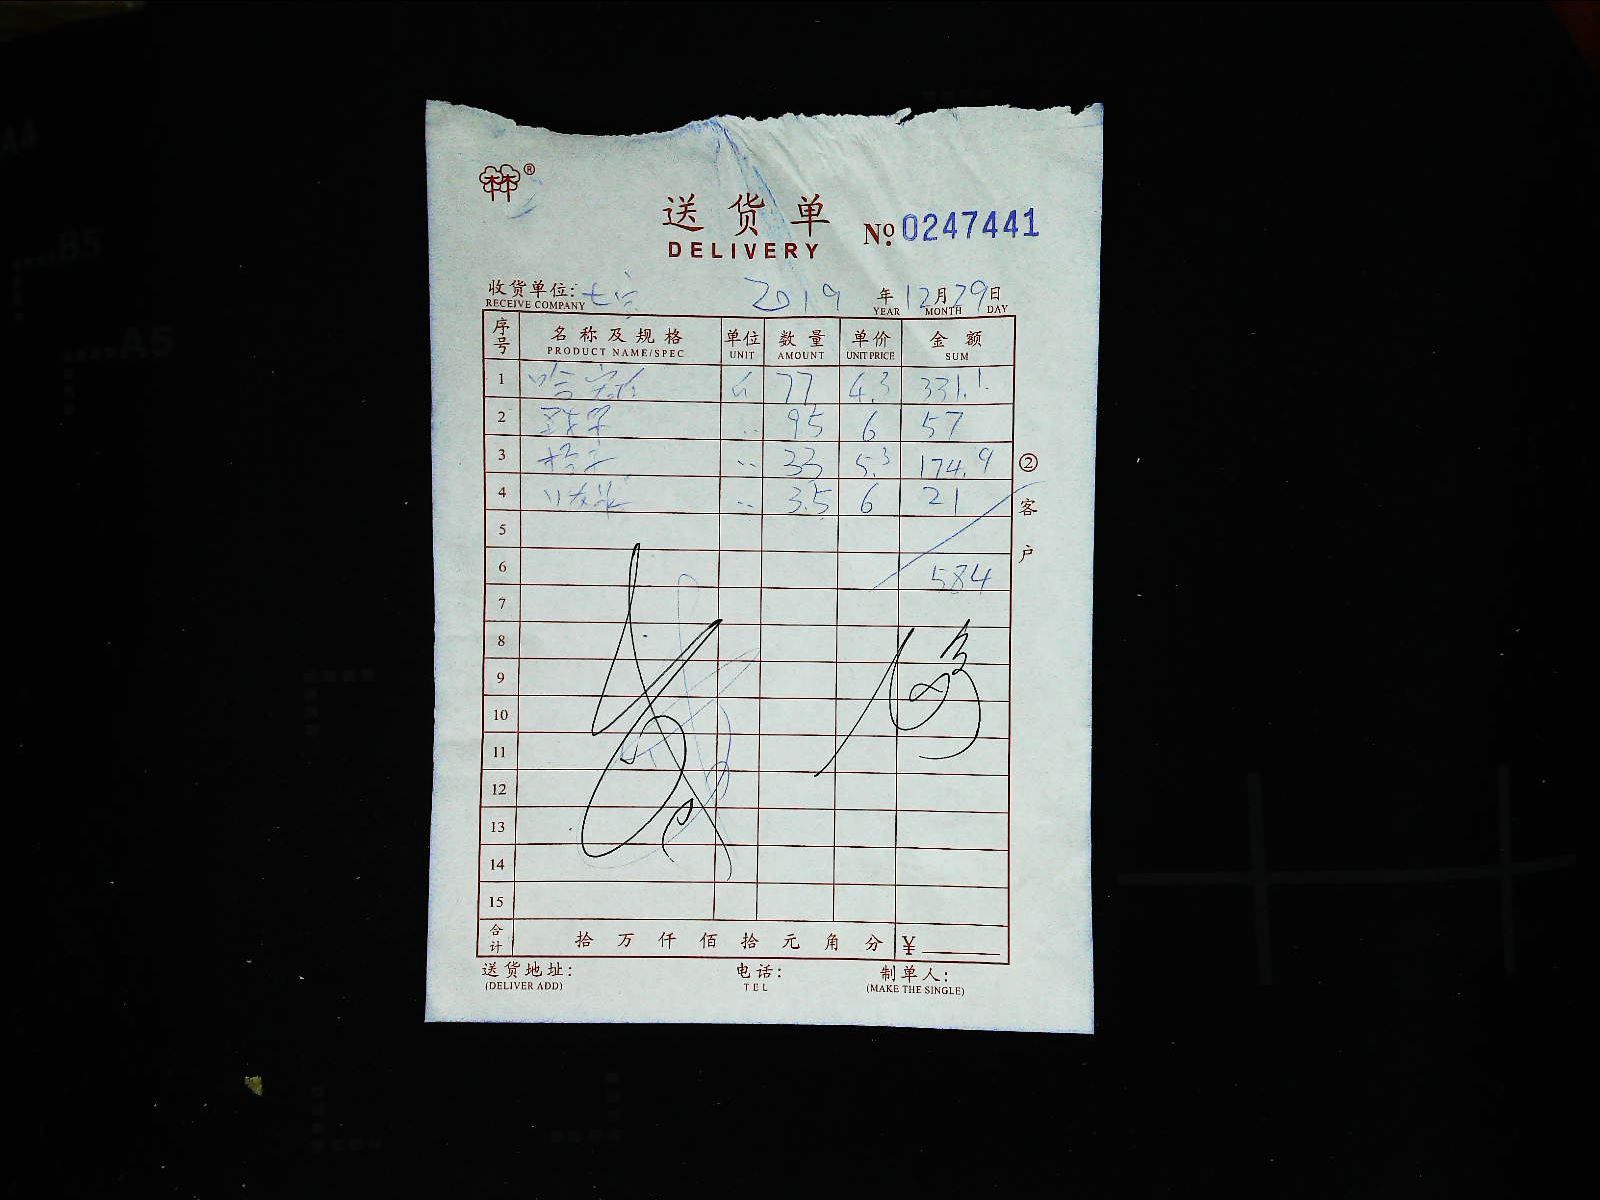 林®
送货单
DELIVERY
№ 0247441
收货单位: 2019 年 12 月 29 日
RECEIVE COMPANY YEAR MONTH DAY
序号 名称及规格 单位 数量 单价 金额
PRODUCT NAME/SPEC UNIT AMOUNT UNIT PRICE SUM
1 77 4.3 331.1
2 95 6 57
3 33 5.3 174.9
4 3.5 6 21
5
6 584
7
8
9
10
11
12
13
14
15
合计 拾 万 仟 佰 拾 元 角 分 ¥
送货地址: 电话: 制单人:
(DELIVER ADD) TEL (MAKE THE SINGLE)
②客户